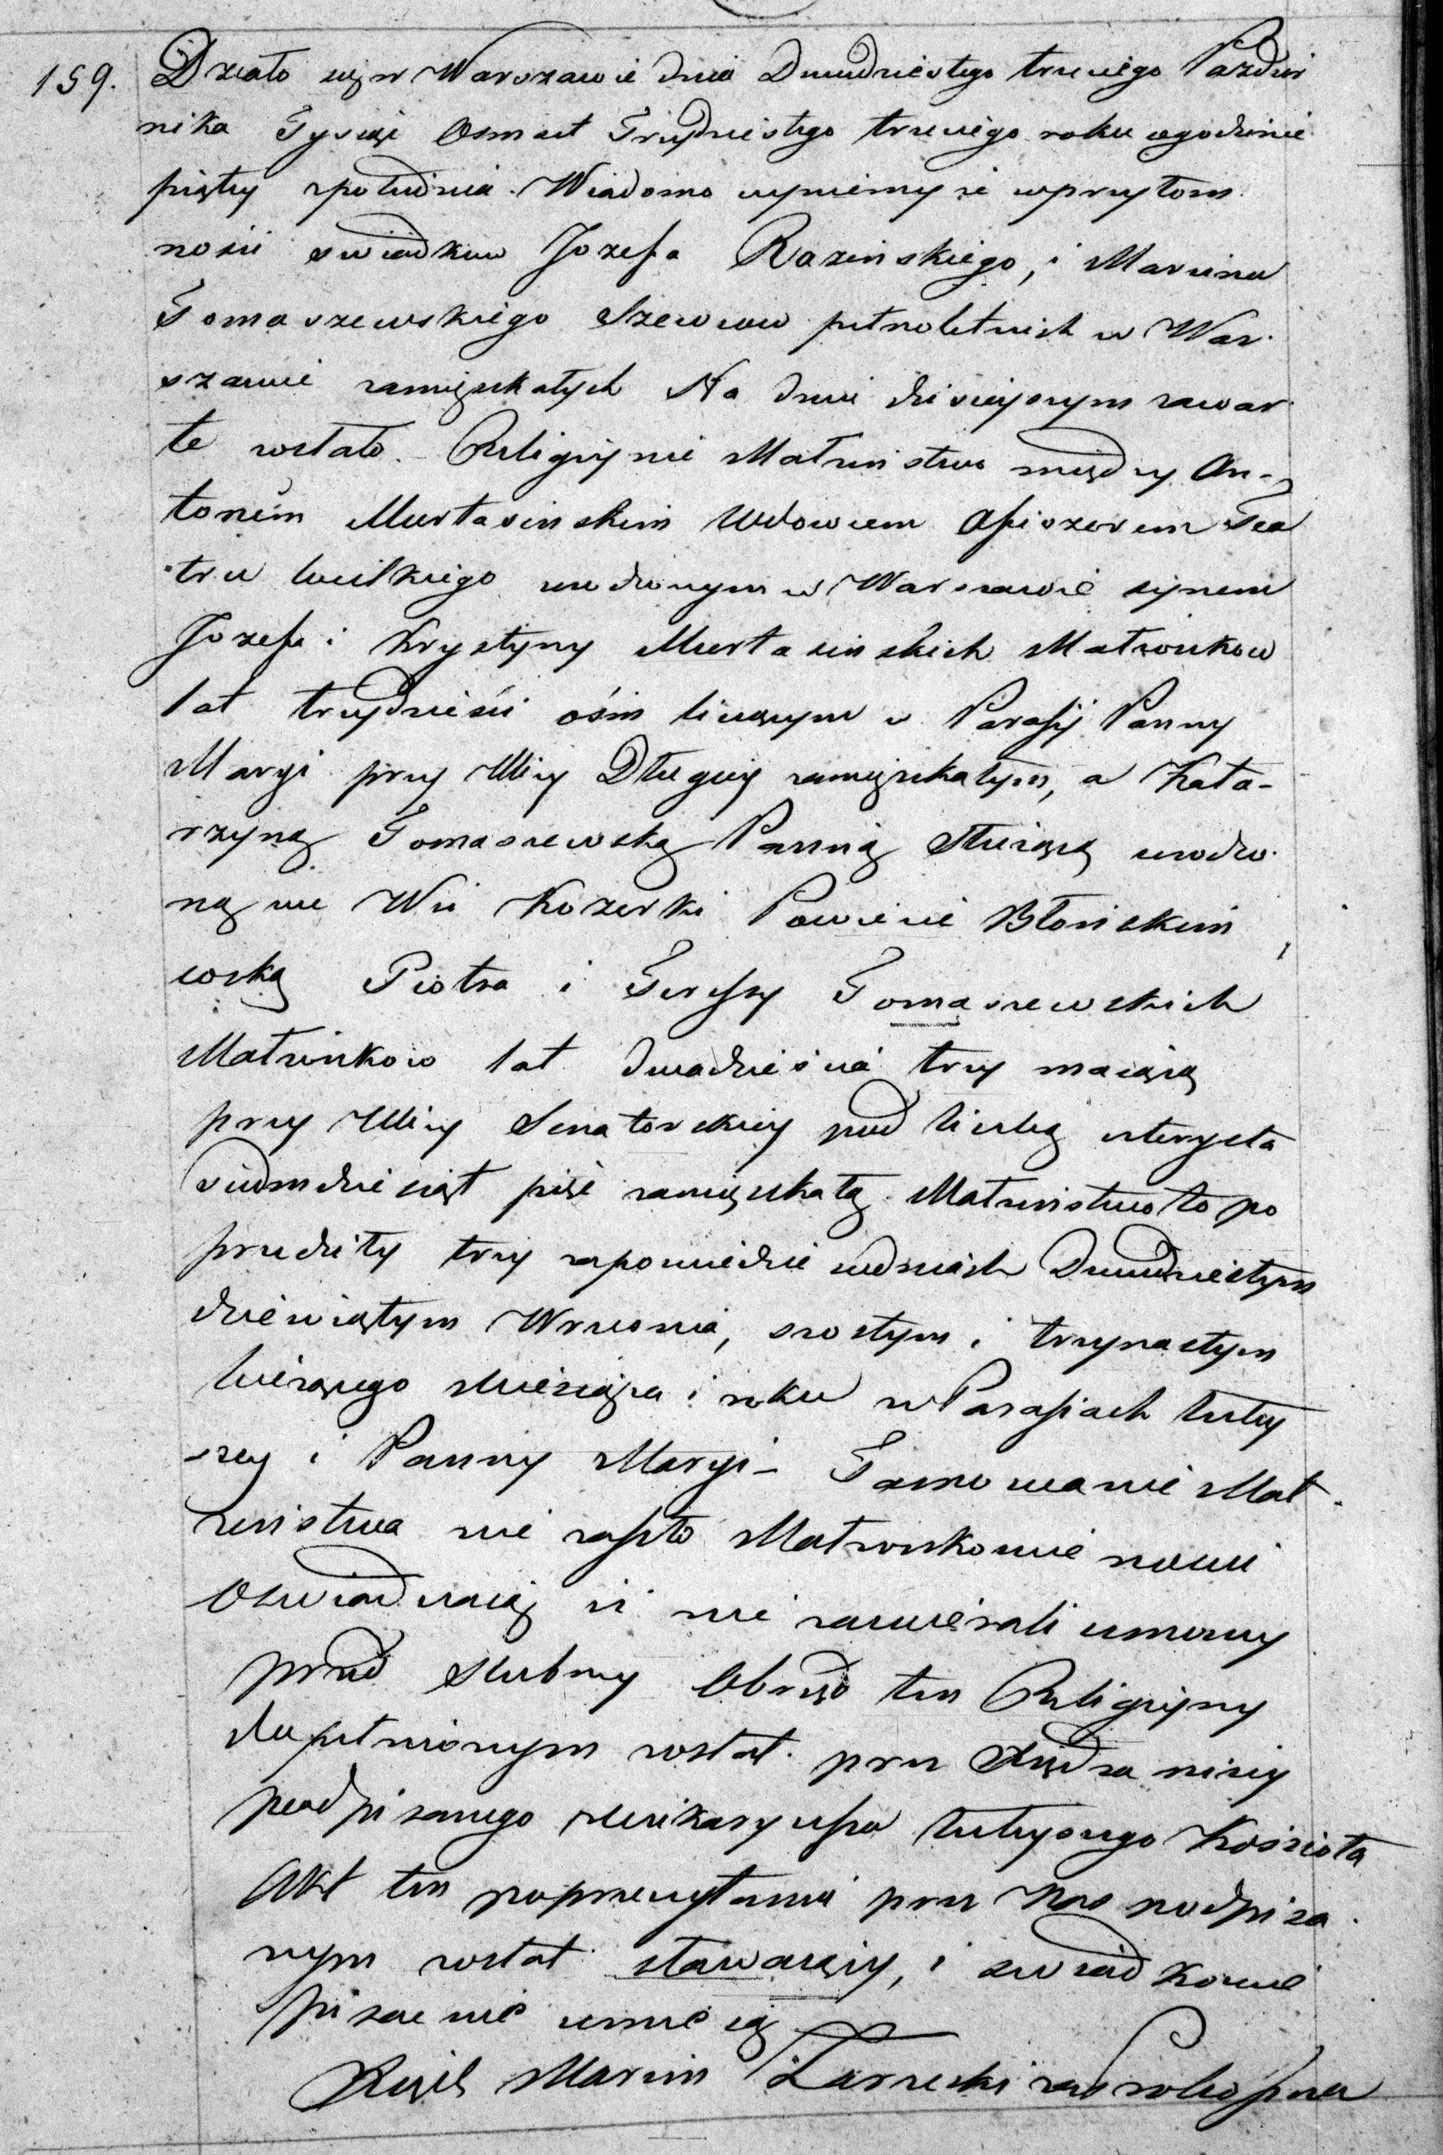 159. Działo się w Warszawie dnia Dwudziestego trzeciego Paździer
nika Tysiąc Osmset Trzydziestego trzeciego roku o godzinie
piątey zpołudnia. Wiadomo czyniemy że w przytom
ności swiadkow Jozefa Razinskiego, i Marcina
Tomaszewskiego Szewcow pełnoletnich w War
szawie zamięszkałych Na dniu dzisieyszym zawar
te zostało. Religiyne Małżeństwo między An-
tonim Murtasinskim Wdowcem Afiszerem Tea
tru Wielkiego urodzonym w Warszawie synem
Jozefa i Krystyny Murtasinskich Małżonkow
lat trzydzieści ośm liczącym w Parafij Panny
Maryi przy Ulicy Długiey zamięszkałym, a Kata-
rzyną Tomaszewską Panną Służącą urodzo
ną we Wsi Kozerki Powiecie Błońskim
corką Piotra i Teressy Tomaszewskich
Małżonkow lat dwadzieścia trzy maiącą
przy Ulicy Senatorskiey pod liczbą czterysta
siedmdziesiąt pięć zamięszkałą. Małżeństwo to po
przedziły trzy zapowiedzie w dniach Dwudziestym
dziewiątym Września, szostym i trzynastym
bieżącego Miesiąca i roku w Parafiach tutey
szey i Panny Maryi - Tamowanie Mał
żeństwa nie zaszło Małżonkowie nowi
Oswiadczaią iż nie zawierali umowy
przed slubney Obrzęd ten Religiyny
dopełnionym został. przez Xiędza niżey
podpisanego Wikaryusza tuteyszego Kościoła
Akt ten po przeczytaniu przez Nas podpisa
nym został. stawaiący, i swiadkowie
pisać nie umieią
Xiądz Marcin Żarnecki zas Proboszcza